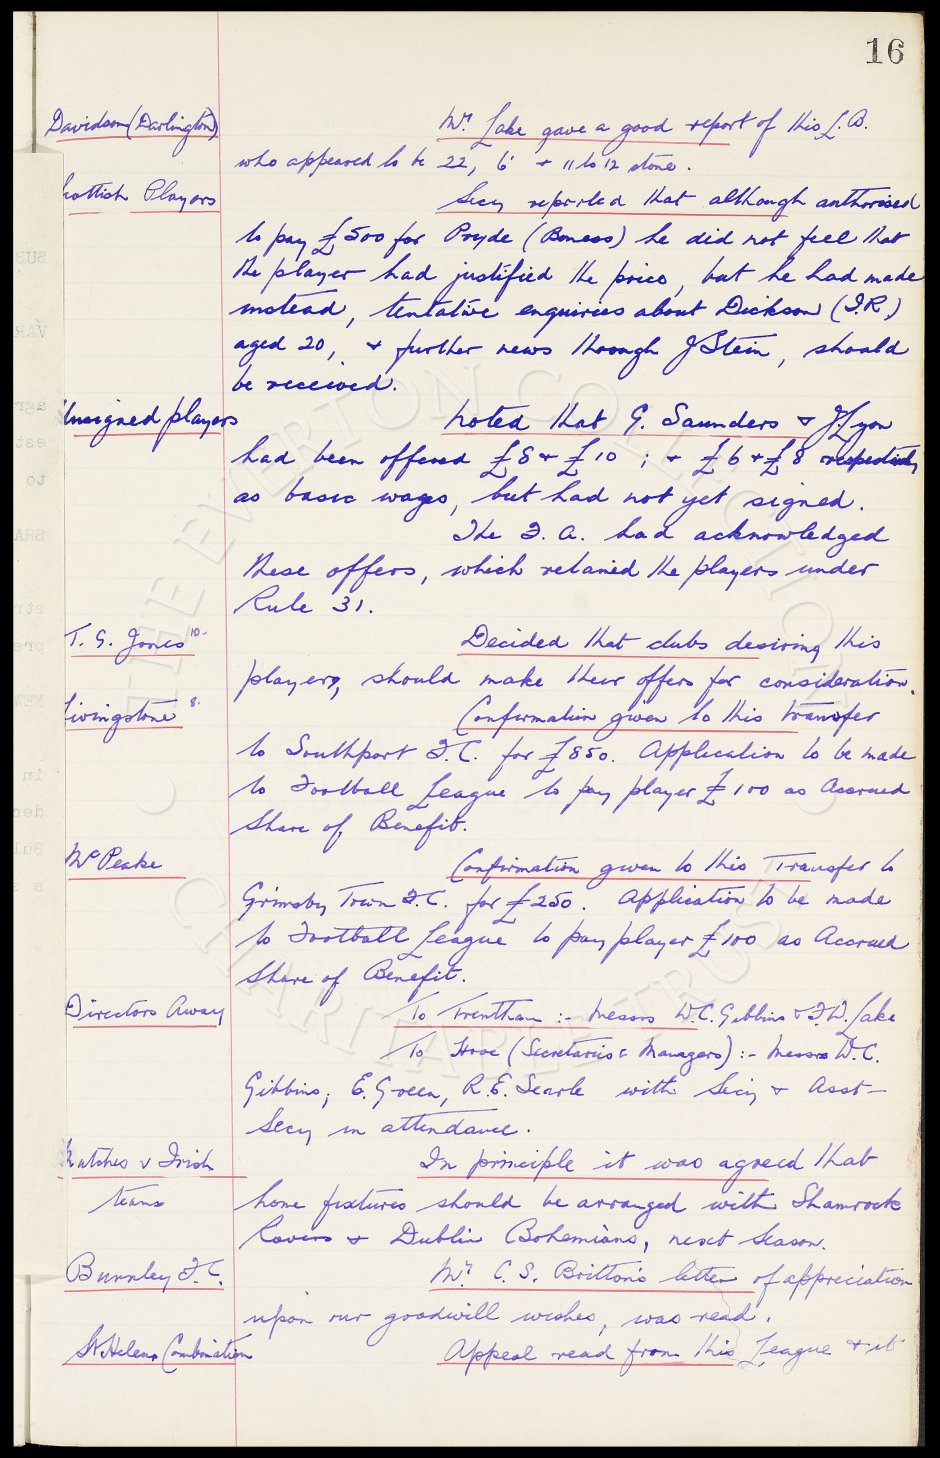 16
Davidson (Darlington) Mr. Lake gave a good report of this L.B.
who appeared to be 22, 6' + 11 to 12 stone.
Scottish Players Secy reported that although authorised
to pay £500 for Pryde (Boness) he did not feel that
the player had justified the price, but he had made
instead, tentative enquiries about Dickson (I.R.)
aged 20, & further news through J Stein, should
be received.
Unsigned players Noted that G. Saunders & J. Lyon
had been offered £8 & £10 ; & £6 & £8 respectively
as basic wages, but had not yet signed.
The F.A. had acknowledged
these offers, which retained the players under
Rule 31.
T. G. Jones 10. Decided that clubs desiring this
player, should make their offers for consideration.
Livingstone 8. Confirmation given to this transfer
to Southport F.C. for £850. Application to be made
to Football League to pay player £100 as Accrued
Share of Benefit.
McPeake Confirmation given to this Transfer to
Grimsby Town F.C. for £250. Application to be made
to Football League to pay player £100 as Accrued
Share of Benefit.
Directors Away To Trentham :- Messrs W.C. Gibbins & F.W. Lake
To Hove (Secretaries & Managers) :- Messrs W.C.
Gibbins, E. Green, R.E. Searle with Secy & Asst-
Secy in attendance.
Matches v Irish In principle it was agreed that
teams home fixtures should be arranged with Shamrock
Rovers & Dublin Bohemians, next Season.
Burnley F.C. Mr. C. S. Britton's letter of appreciation
upon our goodwill wishes, was read.
St Helens Combination Appeal read from this League & it
THE EVERTON COLLECTION
CHARITABLE TRUST